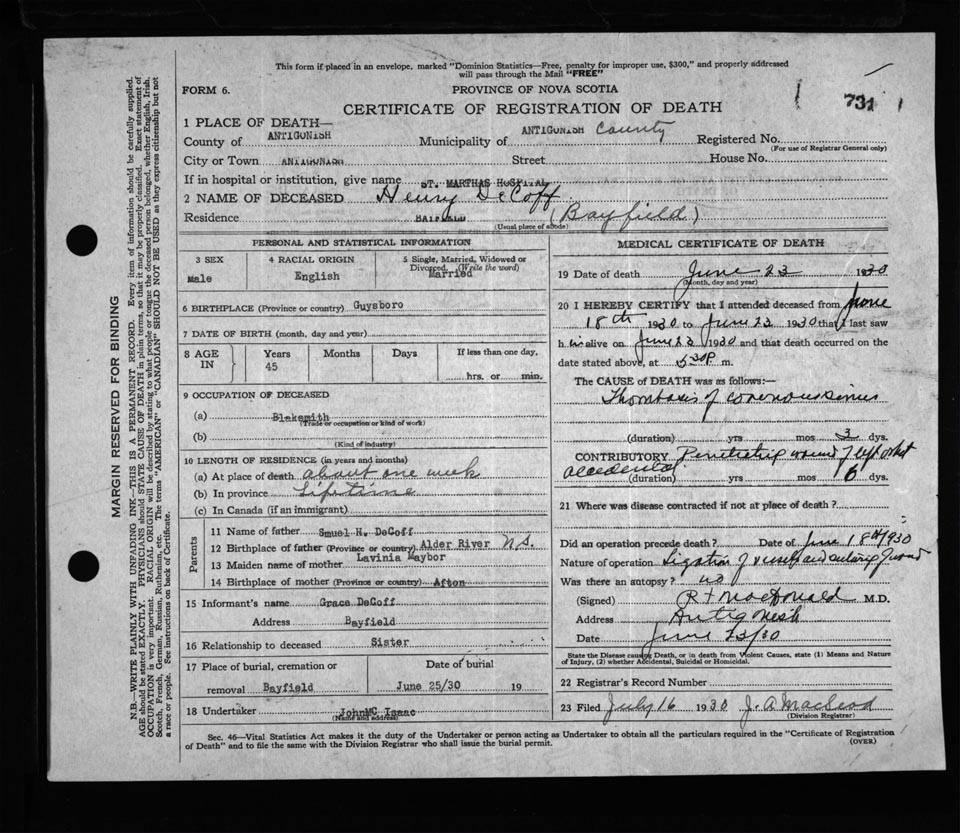 This form if placed in an envelope, marked "Dominion Statistics—Free, penalty for improper use, $300," and properly addressed
will pass through the Mail "FREE"
FORM 6.
PROVINCE OF NOVA SCOTIA
731
CERTIFICATE OF REGISTRATION OF DEATH
1 PLACE OF DEATH—
County of ANTIGONISH Municipality of ANTIGONISH County Registered No.
(For use of Registrar General only)
City or Town ANTIGONISH Street House No.
If in hospital or institution, give name ST. MARTHAS HOSPITAL
2 NAME OF DECEASED Henry DeCoff
Residence BAYFIELD (Bayfield)
(Usual place of abode)
PERSONAL AND STATISTICAL INFORMATION
3 SEX
Male
4 RACIAL ORIGIN
English
5 Single, Married, Widowed or
Divorced. (Write the word)
Married
6 BIRTHPLACE (Province or country) Guysboro
7 DATE OF BIRTH (month, day and year)
8 AGE IN
Years Months Days If less than one day,
45
hrs. or min.
9 OCCUPATION OF DECEASED
(a) Blaksmith
(Trade or occupation or kind of work)
(b)
(Kind of industry)
10 LENGTH OF RESIDENCE (in years and months)
(a) At place of death about one week
(b) In province Lifetime
(c) In Canada (if an immigrant)
Parents
11 Name of father Smuel H. DeCoff
12 Birthplace of father (Province or country) Alder River N.S.
13 Maiden name of mother Lavinia Naybor
14 Birthplace of mother (Province or country) Afton
15 Informant's name Grace DeCoff
Address Bayfield
16 Relationship to deceased Sister
17 Place of burial, cremation or
removal Bayfield
Date of burial
June 25/30 19
18 Undertaker JohnMC Isaac
(Name and address)
MEDICAL CERTIFICATE OF DEATH
19 Date of death June 23 1930
(Month, day and year)
20 I HEREBY CERTIFY that I attended deceased from June
18th 1930 to June 23 1930 that I last saw
h im alive on June 23 1930 and that death occurred on the
date stated above, at 5-30P. m.
The CAUSE OF DEATH was as follows:—
Thombosis of cavernous sinus
(duration) yrs mos 3 dys.
CONTRIBUTORY Penetrating wound of left orbit
accidental.
(duration) yrs mos 6 dys.
21 Where was disease contracted if not at place of death?
Did an operation precede death? Date of June 18th/930
Nature of operation Ligation of vessel and suturing of wound
Was there an autopsy? no
(Signed) MacDonald M.D.
Address Antigonish
Date June 23/30
State the Disease causing Death, or in death from Violent Causes, state (1) Means and Nature
of Injury, (2) whether Accidental, Suicidal or Homicidal.
22 Registrar's Record Number
23 Filed July 16 1930 J. A. Macleod
(Division Registrar)
Sec. 46—Vital Statistics Act makes it the duty of the Undertaker or person acting as Undertaker to obtain all the particulars required in the "Certificate of Registration
of Death" and to file the same with the Division Registrar who shall issue the burial permit.
(OVER)
MARGIN RESERVED FOR BINDING
N.B.—WRITE PLAINLY WITH UNFADING INK—THIS IS A PERMANENT RECORD. Every item of information should be carefully supplied.
AGE should be stated EXACTLY. PHYSICIANS should STATE CAUSE OF DEATH in plain terms, so that it may be properly classified. Exact statement of
OCCUPATION is very important. RACIAL ORIGIN will be described by stating to what people or tongue the deceased person belonged, whether English, Irish,
Scotch, French, German, Russian, Ruthenian, etc. The terms "AMERICAN" or "CANADIAN" SHOULD NOT BE USED as they express citizenship but not
a race or people. See instructions on back of Certificate.